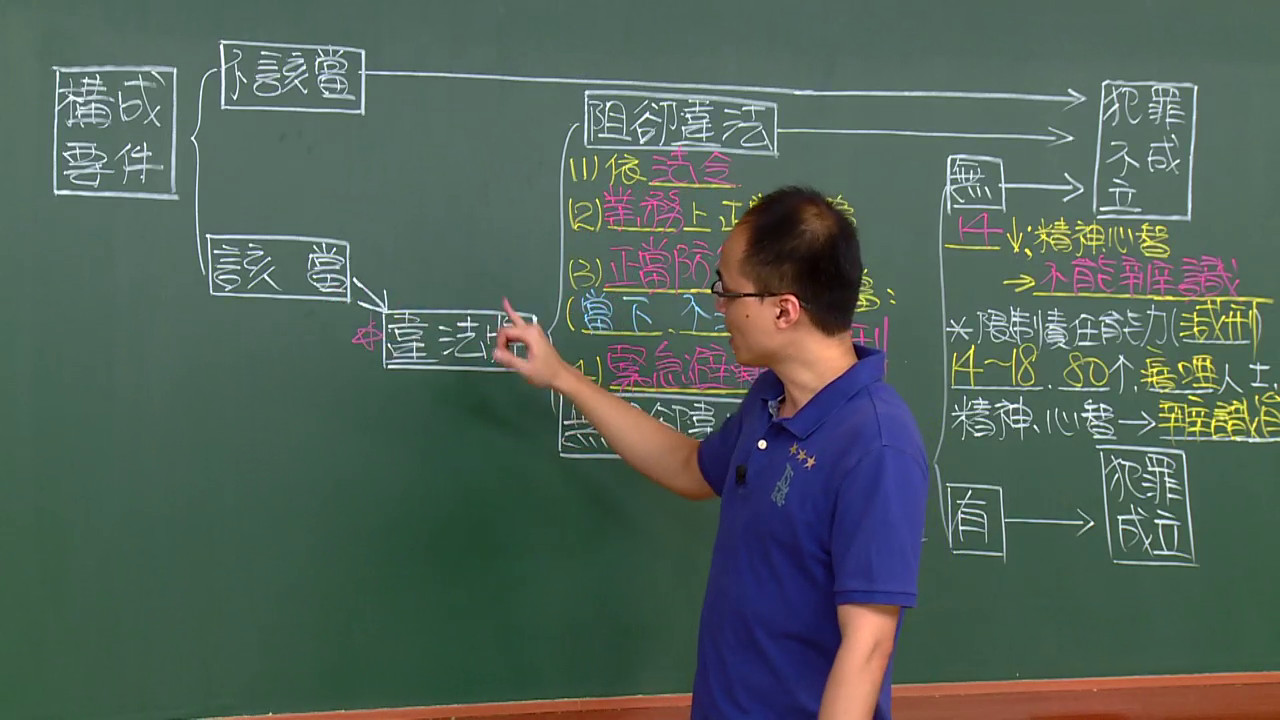 構成
要件
不該當
該 當
違法性
阻卻違法
(1)依法令
(2)業務上正
(3)正當防
(當下、不
緊急避
無 卻違
無
14↓;精神心智
→不能辨識
*限制責任能力(減刑
14~18、80↑、瘖啞人士、
精神、心智→辨識
有
犯罪
不成
立
犯罪
成立